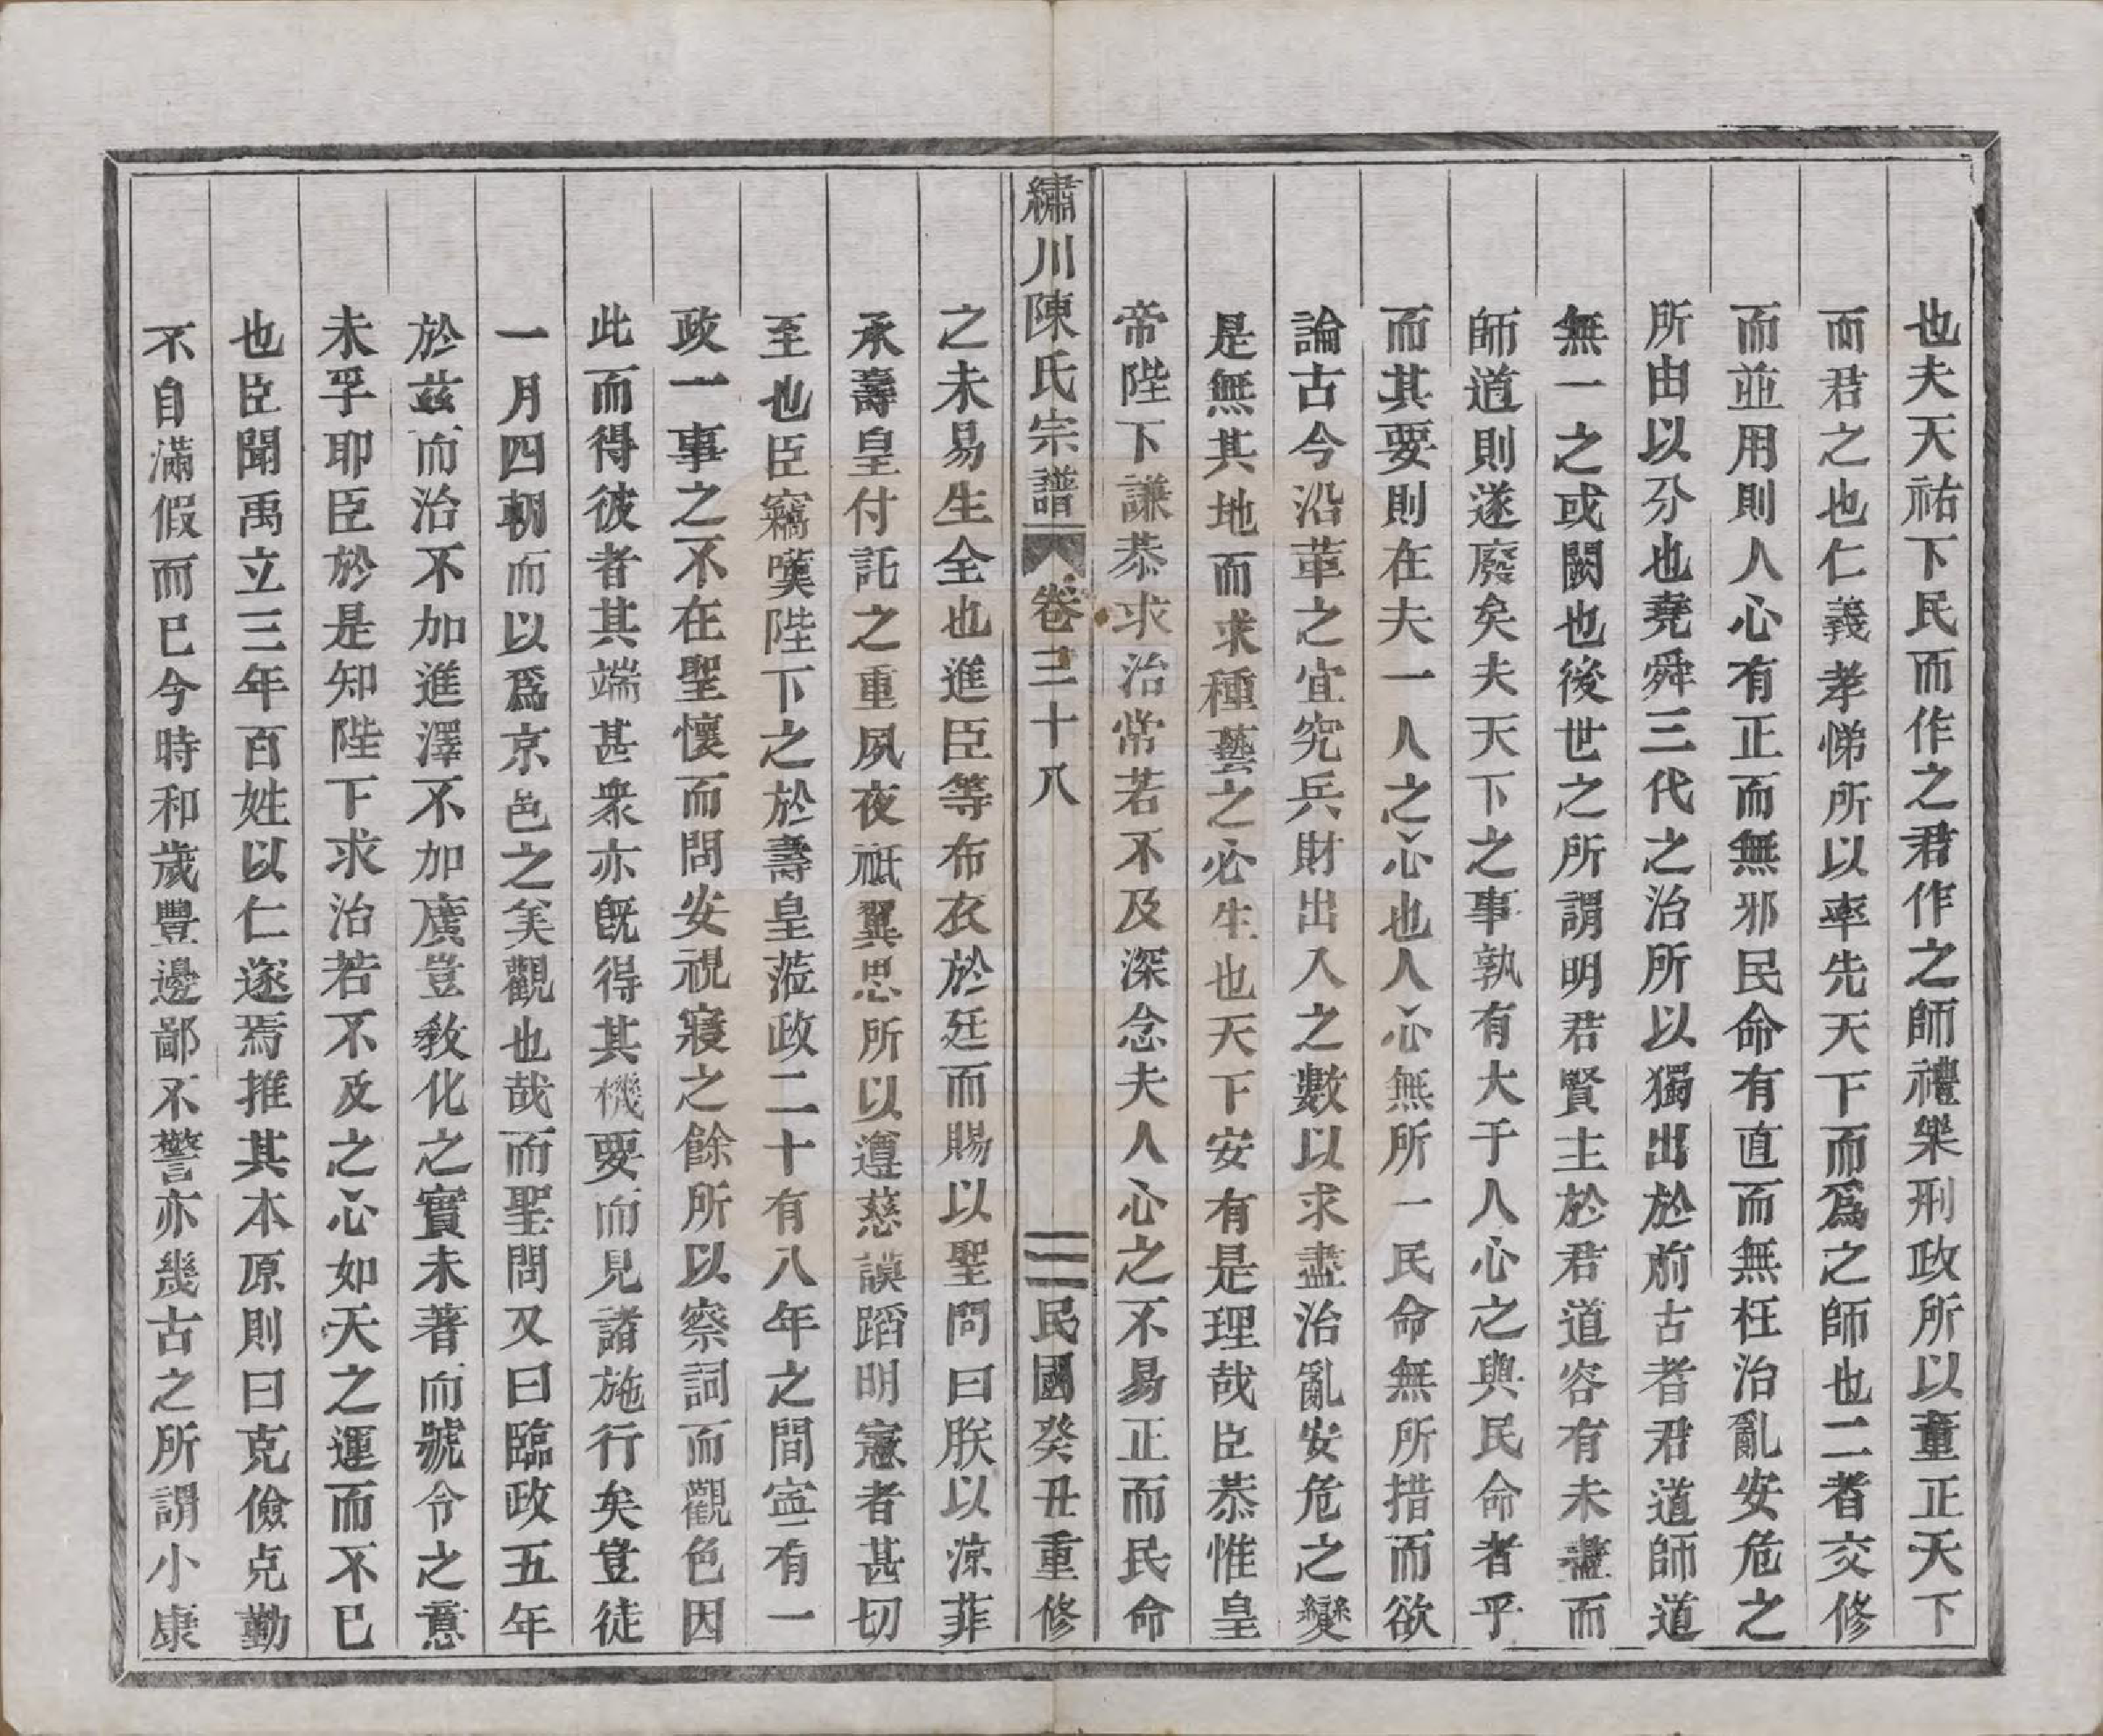 也夫天祐下民而作之君作之師禮樂刑政所以董正天下
而君之也仁義孝悌所以率先天下而爲之師也二者交修
而並用則人心有正而無邪民命有直而無枉治亂安危之
所由以分也堯舜三代之治所以獨出於前古者君道師道
無一之或闕也後世之所謂明君賢主於君道容有未盡而
師道則遂廢矣夫天下之事孰有大于人心之與民命者乎
而其要則在夫一人之心也人心無所一民命無所措而欲
論古今沿革之宜究兵財出入之數以求盡治亂安危之變
是無其地而求種藝之必生也天下安有是理哉臣恭惟皇
帝陛下謙恭求治常若不及深念夫人心之不易正而民命
繡川陳氏宗譜 卷三十八 三 民國癸丑重修
之未易生全也進臣等布衣於廷而賜以聖問曰朕以涼菲
承壽皇付託之重夙夜祗翼思所以遵慈謨蹈明憲者甚切
至也臣竊嘆陛下之於壽皇蒞政二十有八年之間寧有一
政一事之不在聖懷而問安視寢之餘所以察詞而觀色因
此而得彼者其端甚衆亦旣得其機要而見諸施行矣豈徒
一月四朝而以爲京邑之美觀也哉而聖問又曰臨政五年
於茲而治不加進澤不加廣豈教化之實未著而號令之意
未孚耶臣於是知陛下求治若不及之心如天之運而不已
也臣聞禹立三年百姓以仁遂焉推其本原則曰克儉克勤
不自滿假而已今時和歲豐邊鄙不警亦幾古之所謂小康